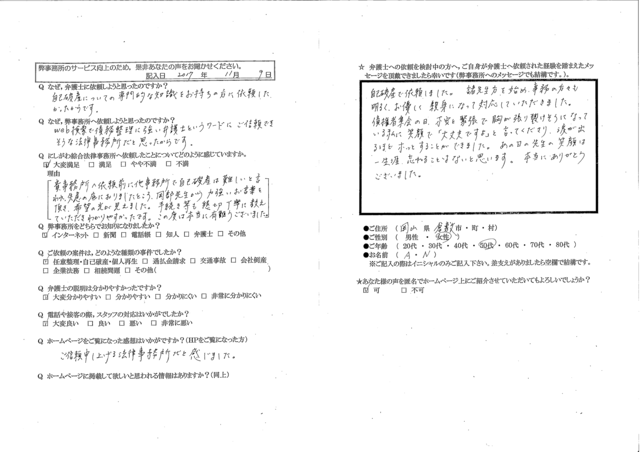 弊事務所のサービス向上のため、是非あなたの声をお聞かせください。
記入日 2017 年 11月 9日
Q なぜ、弁護士に依頼しようと思ったのですか?
自己破産についての専門的な知識をお持ちの方に依頼した
かったからです。
Q なぜ、弊事務所へ依頼しようと思ったのですか?
web検索で債務整理に強い弁護士というワードにご信頼でき
そうな法律事務所だと思ったからです。
Q にしがわ総合法律事務所へ依頼したことについてどのように感じていますか。
☑ 大変満足 □ 満足 □ やや不満 □ 不満
理由
貴事務所への依頼前に他事務所で自己破産は難しいと言
われ失意の底におりましたところ、岡部先生から力強いお言葉を
頂き、希望の光が見えました。手続き等も親切丁寧に教え
ていただきわかりやすかったです。この度は本当に有難うございました。
Q 弊事務所をどちらでお知りになりましたか?
☑ インターネット □ 新聞 □ 電話帳 □ 知人 □ 弁護士 □ その他
Q ご依頼の案件は、どのような種類の事件でしたか?
☑ 任意整理・自己破産・個人再生 □ 過払金請求 □ 交通事故 □ 会社倒産
□ 企業法務 □ 相続問題 □ その他( )
Q 弁護士の説明は分かりやすかったですか?
☑ 大変分かりやすい □ 分かりやすい □ 分かりにくい □ 非常に分かりにくい
Q 電話や接客の際、スタッフの対応はいかがでしたか?
☑ 大変良い □ 良い □ 悪い □ 非常に悪い
Q ホームページをご覧になった感想はいかがですか?(HPをご覧になった方)
ご信頼申し上げる法律事務所だと感じました。
Q ホームページに掲載して欲しいと思われる情報はありますか?(同上)
☆ 弁護士への依頼を検討中の方へ、ご自身が弁護士へ依頼された経験を踏まえたメッ
セージを頂戴できましたら幸いです(弊事務所へのメッセージでも結構です。)。
自己破産で依頼しました。 諸先生方を始め、事務の方々も
明るく、お優しく 親身になって対応していただきました。
債権者集会の日、不安と緊張で 胸が張り裂けそうになって
いる私に 笑顔で "大丈夫ですよ"と 言ってくださり、涙が出
るほど ホッとすることができました。 あの日の先生の 笑顔は
一生涯 忘れることはないと思います。 本当に ありがとう
ございました。
●ご住所 (岡山 県 倉敷 市・町・村)
●ご性別 (男性・女性)
●ご年齢 (20代・30代・40代・50代・60代・70代・80代)
●お名前 (A・N)
※ご記入の際はイニシャルのみご記入下さい。差支えがありましたら空欄で結構です。
★あなた様の声を匿名でホームページ上にご紹介させていただいてもよろしいでしょうか?
☑ 可 □ 不可